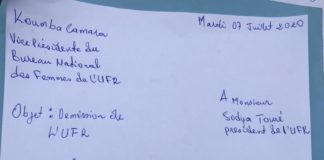 Koumba Camara
Mardi 07 Juillet 2020
Vice Présidente du
Bureau National
des Femmes de L'UFR
Objet : Demission de
L'UFR
A Monsieur
Sidya Touré
président de l'UFR